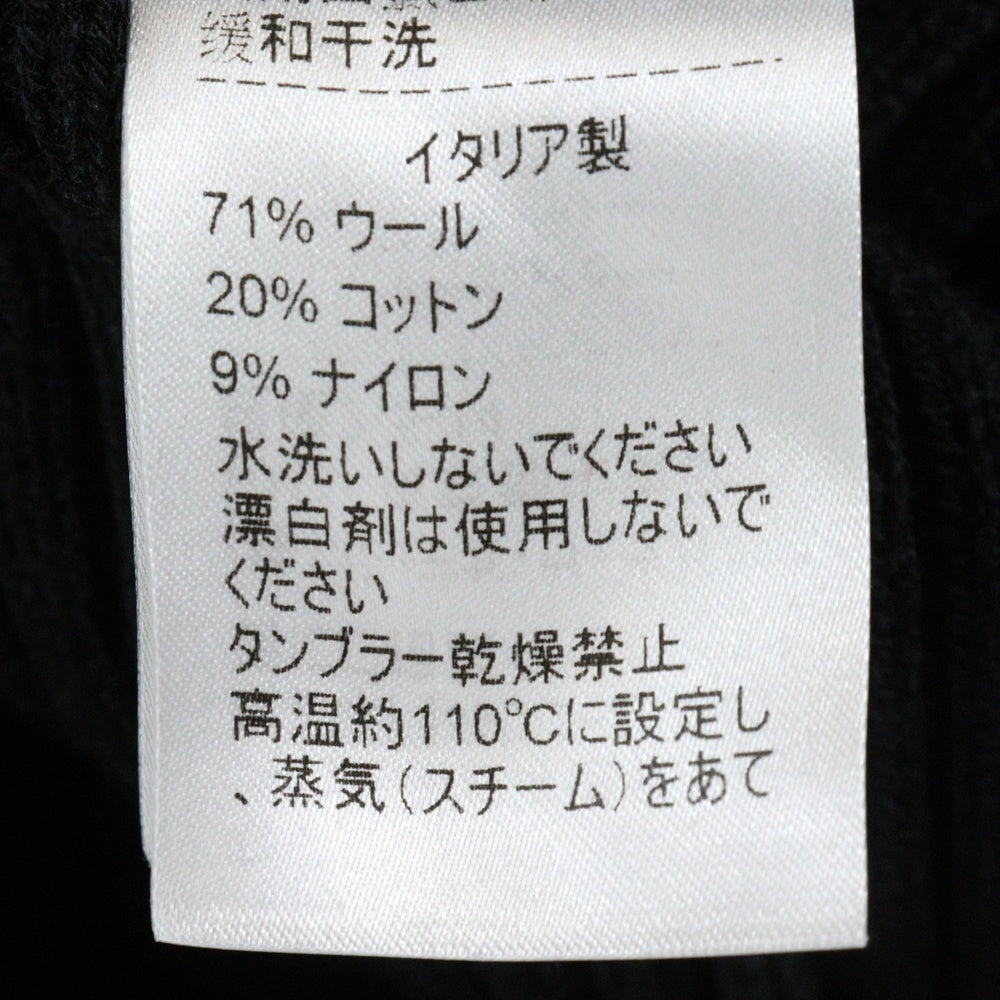 缓和干洗
イタリア製
71% ウール
20% コットン
9% ナイロン
水洗いしないでください
漂白剤は使用しないで
ください
タンブラー乾燥禁止
高温約110℃に設定し
、蒸気(スチーム)をあて